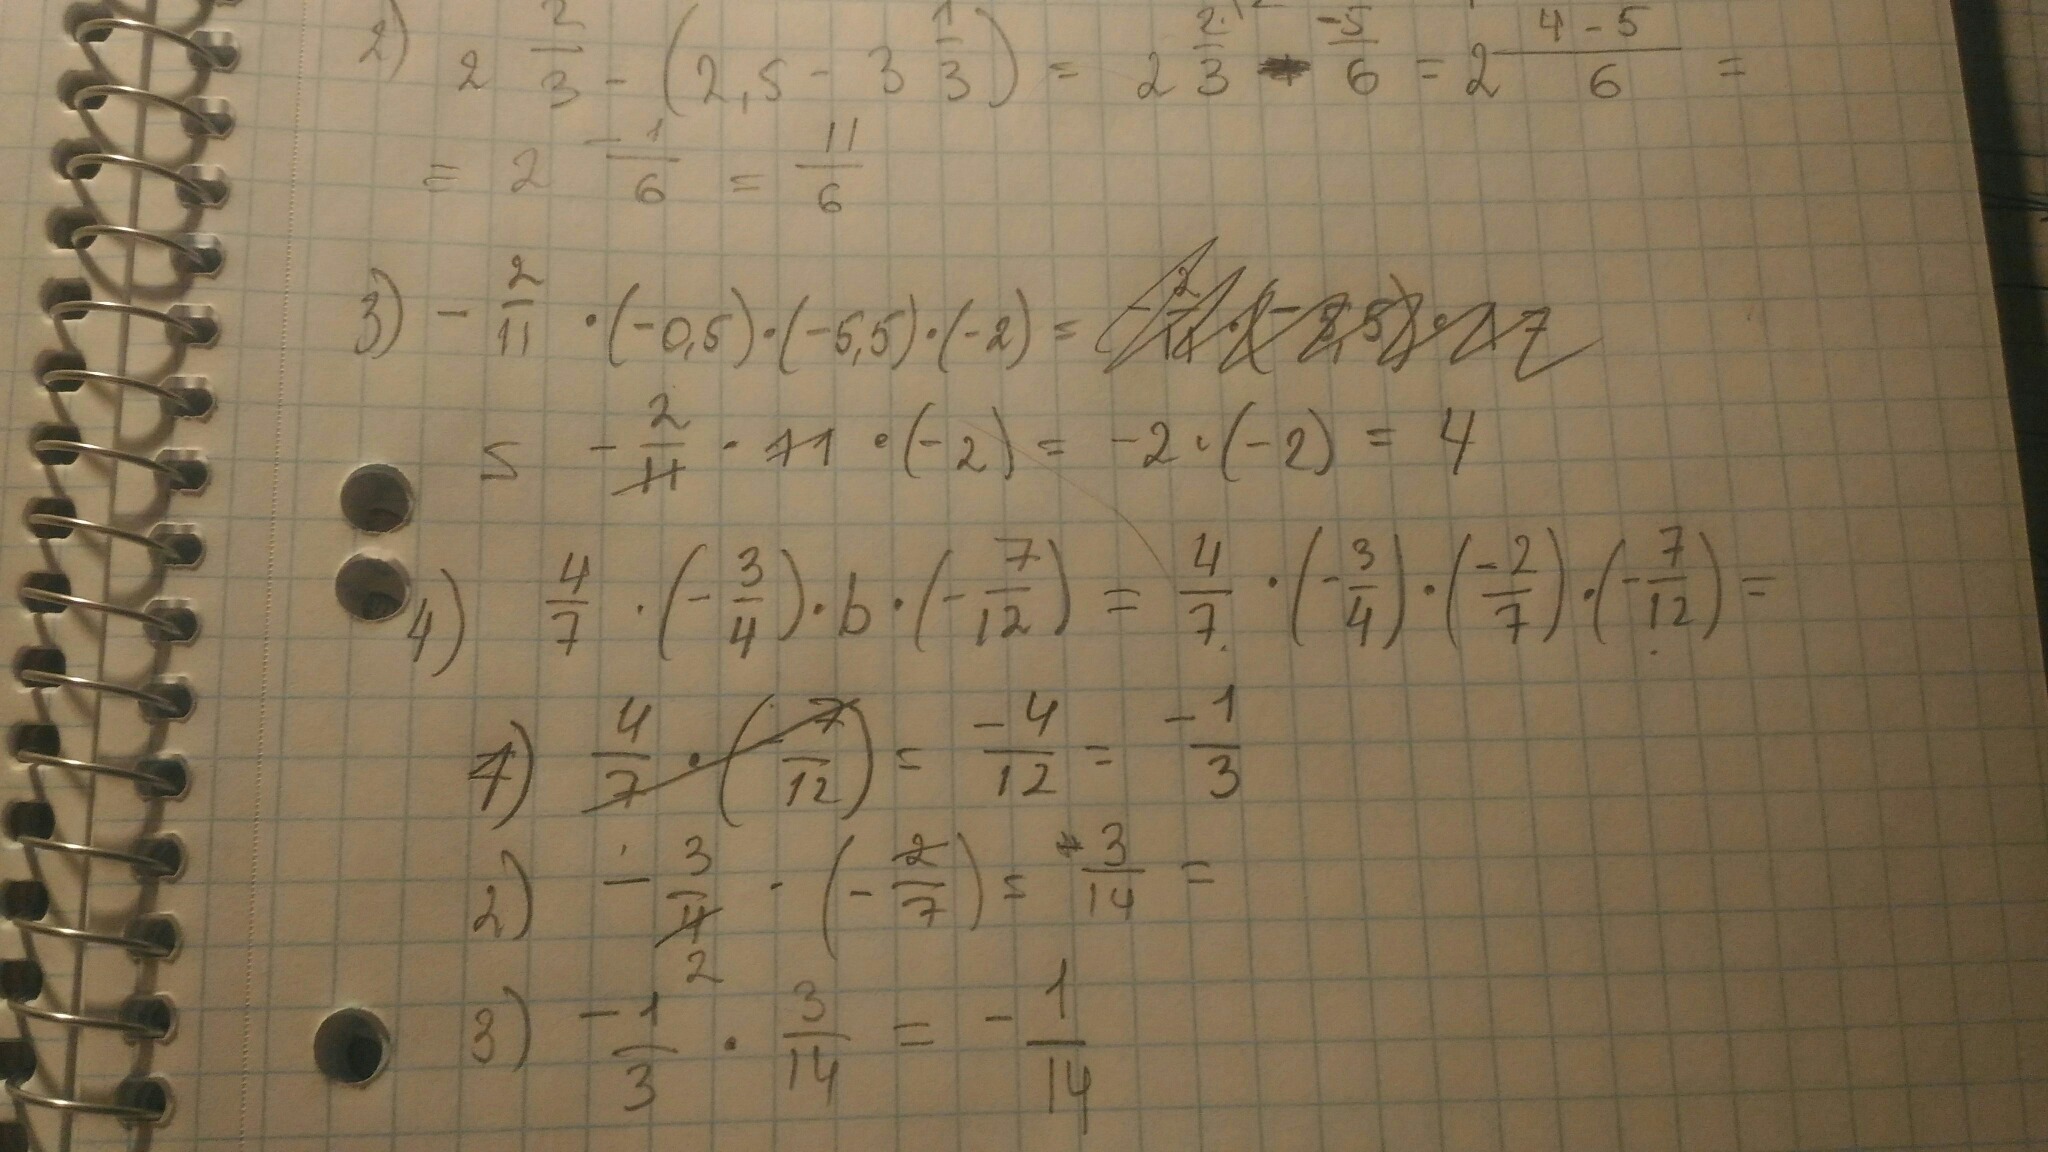 2) 2 2/3 - (2,5 - 3 1/3) = 2 2/3 -5/6 = 2 4-5/6 =
= 2 -1/6 = 11/6
3) - 2/11 · (-0,5) · (-5,5) · (-2) =
= - 2/11 · 11 · (-2) = -2 · (-2) = 4
4) 4/7 · (- 3/4) · b · (- 7/12) = 4/7 · (- 3/4) · (-2/7) · (- 7/12) =
1) 4/7 · (- 7/12) = -4/12 = -1/3
2) - 3/4 · (- 2/7) = 3/14 =
2
3) -1/3 · 3/14 = - 1/14